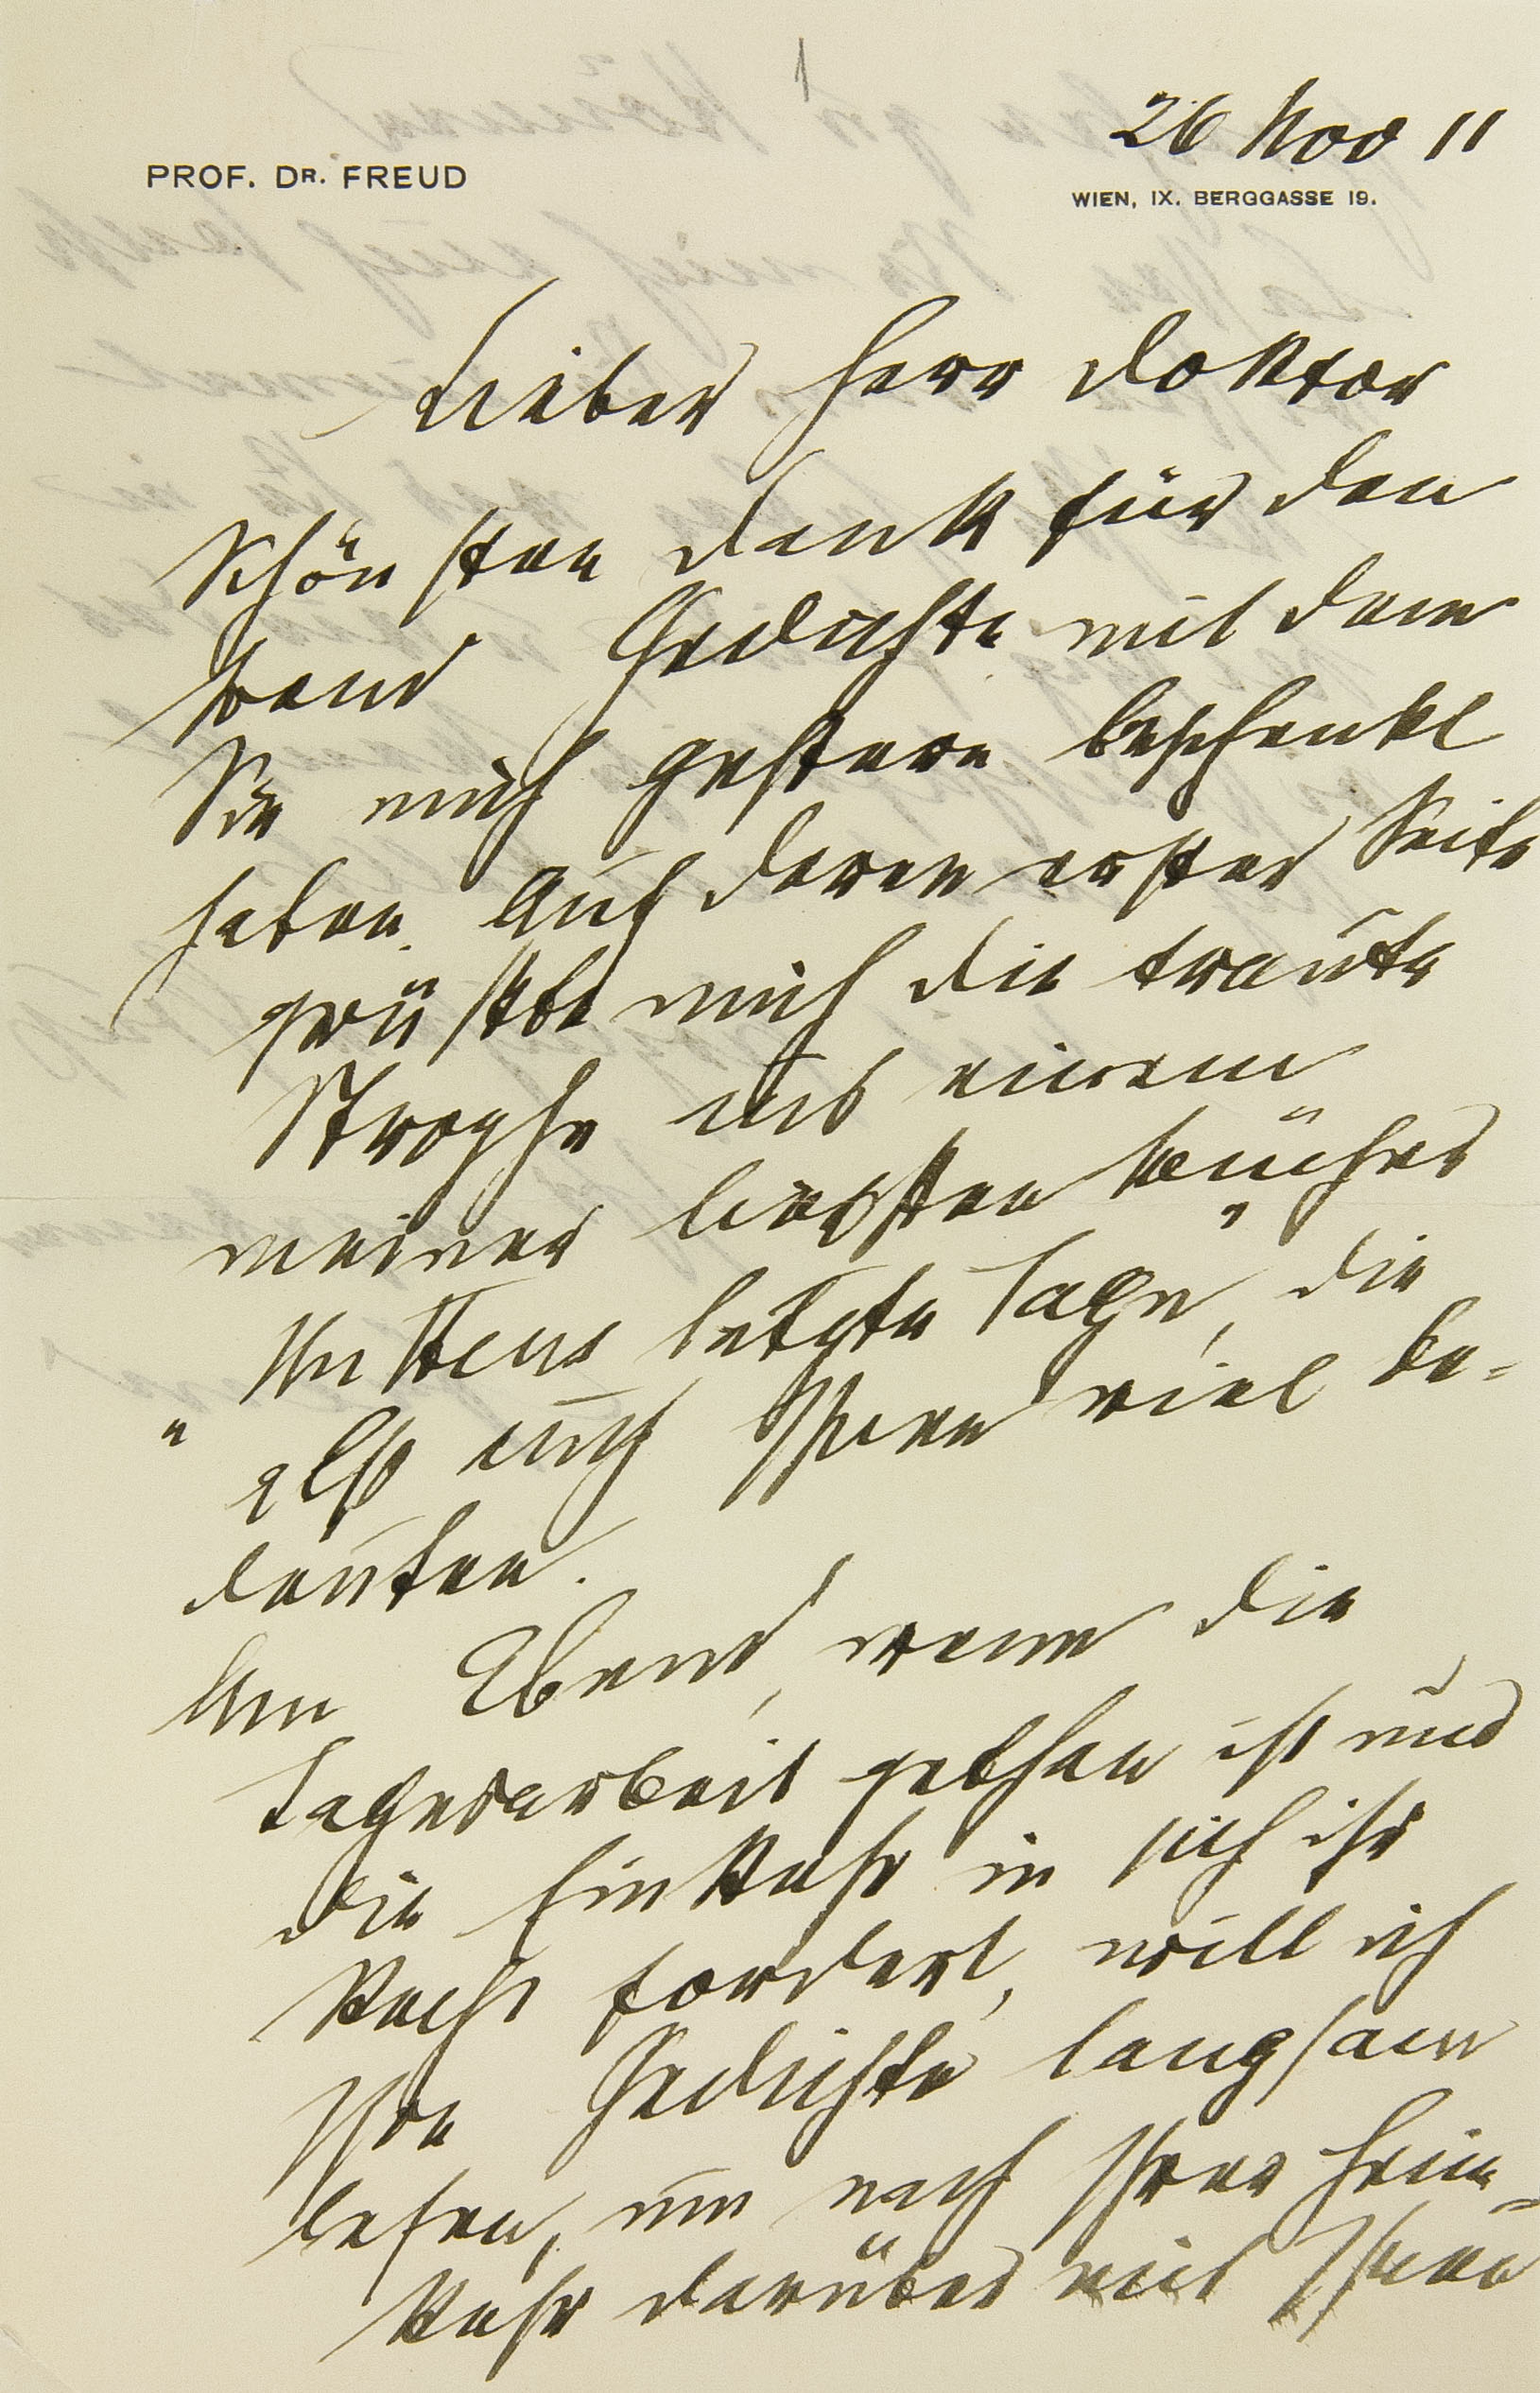 1
26 Nov 11
PROF. DR. FREUD
WIEN, IX. BERGGASSE 19.
Lieber Herr Doktor
Schönsten Dank für den
Band Gedichte mit dem
Sie mich gestern beschenkt
haben. Auf deren erster Seite
grüßte mich die traute
Strophe aus einem
meiner liebsten Bücher
„Huttens letzte Tage“, die
also auch Ihnen viel be-
deuten.
Am Abend, wenn die
Tagesarbeit gethan ist und
die Einkehr in sich ihr
Recht fordert, will ich
Ihre Gedichte langsam
lesen, um nach Ihrer Heim-
kehr darüber mit Ihnen